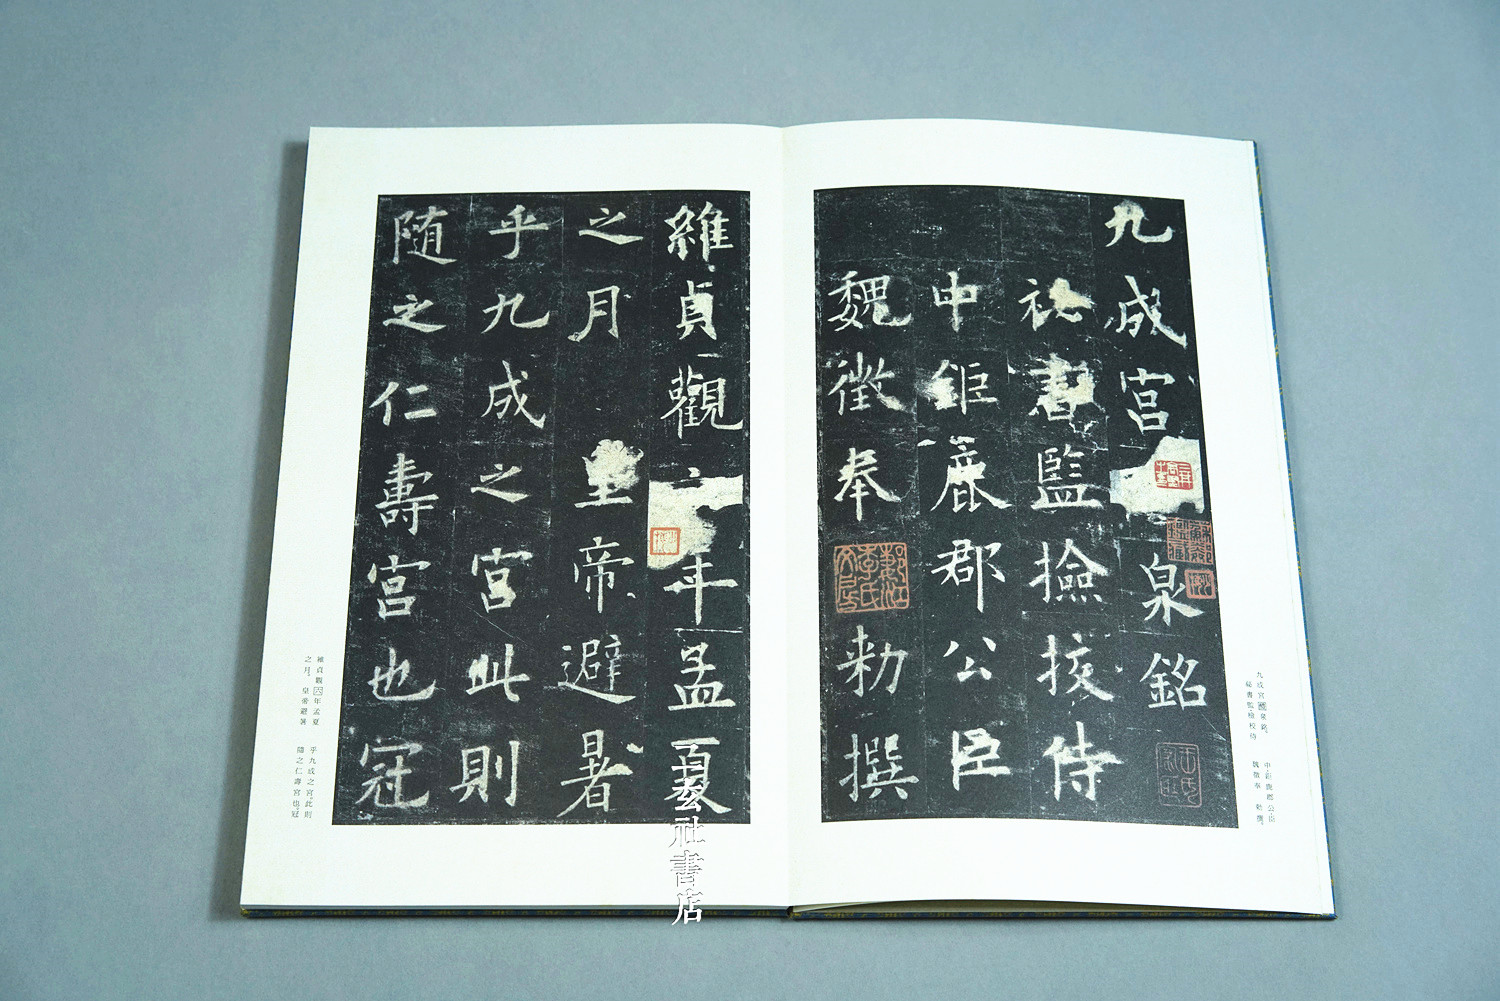 九成宮泉銘
祕書監撿挍侍
中鉅鹿郡公臣
魏徵奉 勑撰
維貞觀六年孟夏
之月 皇帝避暑
乎九成之宮此則
随之仁壽宮也冠
九成宮醴泉銘。
秘書監、檢校侍
中、鉅鹿郡公臣
魏徵奉 勅撰。
維貞觀六年孟夏
之月。 皇帝避暑
乎九成之宮。此則
隨之仁壽宮也。冠
玄社書店